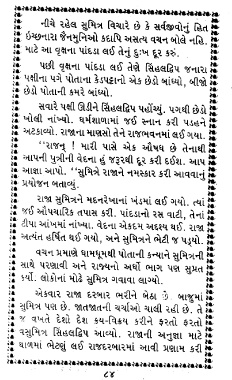 નીચે રહેલ સુમિત્ર વિચારે છે કે સર્વજીવોનું હિત
ઇચ્છનારા જૈનમુનિઓ કદાપિ અસત્ય વચન બોલે નહિ.
માટે આ વૃક્ષના પાંદડા લઈ તેનું દુઃખ દૂર કરું.
પછી વૃક્ષના પાંદડા લઈ તેણે સિંહલદ્વિપ જનારા
પક્ષીના પગે પોતાના કેડપટ્ટાનો એક છેડો બાંધ્યો, બીજો
છેડો પોતાની કમરે બાંધ્યો.
સવારે પક્ષી ઊડીને સિંહલદ્વિપ પહોંચ્યું. પગથી છેડો
ખોલી નાંખ્યો. ધર્મશાળામાં જઈ સ્નાન કરી પડહને
અટકાવ્યો. રાજાના માણસો તેને રાજભવનમાં લઈ ગયા.
"રાજન્ ! મારી પાસે એક ઔષધ છે તેનાથી
આપની પુત્રીની વેદના હું જરૂરથી દૂર કરી દઈશ. આપ
આજ્ઞા આપો. "સુમિત્રે રાજાને નમસ્કાર કરી આવવાનું
પ્રયોજન બતાવ્યું.
રાજા સુમિત્રને મદનરેખાનાં ખંડમાં લઈ ગયો. ત્યાં
જઈ ઔપચારિક તપાસ કરી. પાંદડાનો રસ વાટી, તેનાં
ટીપા આંખમાં નાંખ્યા. વેદના એકદમ અદ્રશ્ય થઈ. રાજા
અત્યંત હર્ષિત થઈ ગયો, અને સુમિત્રને ભેટી જ પડ્યો.
વચન પ્રમાણે ધામધૂમથી પોતાની કન્યાને સુમિત્રની
સાથે પરણાવી અને રાજ્યનો અર્ધો ભાગ પણ સુપ્રત
કર્યો. લોકોનાં મોઢે સુમિત્ર ગવાવા લાગ્યો.
એકવાર રાજા દરબાર ભરીને બેઠા છે. બાજુમાં
સુમિત્ર પણ છે. જાતજાતની ચર્ચાઓ ચાલી રહી છે. તે
જ વખતે દેશો દેશ ક્રય-વિક્રય કરીને ફરતો ફરતો
વસુમિત્ર સિંહલદ્વિપ આવ્યો. રાજાની અનુજ્ઞા માટે
થાળમાં ભેટણું લઈ રાજદરબારમાં આવી પ્રણામ કરી
૮૪